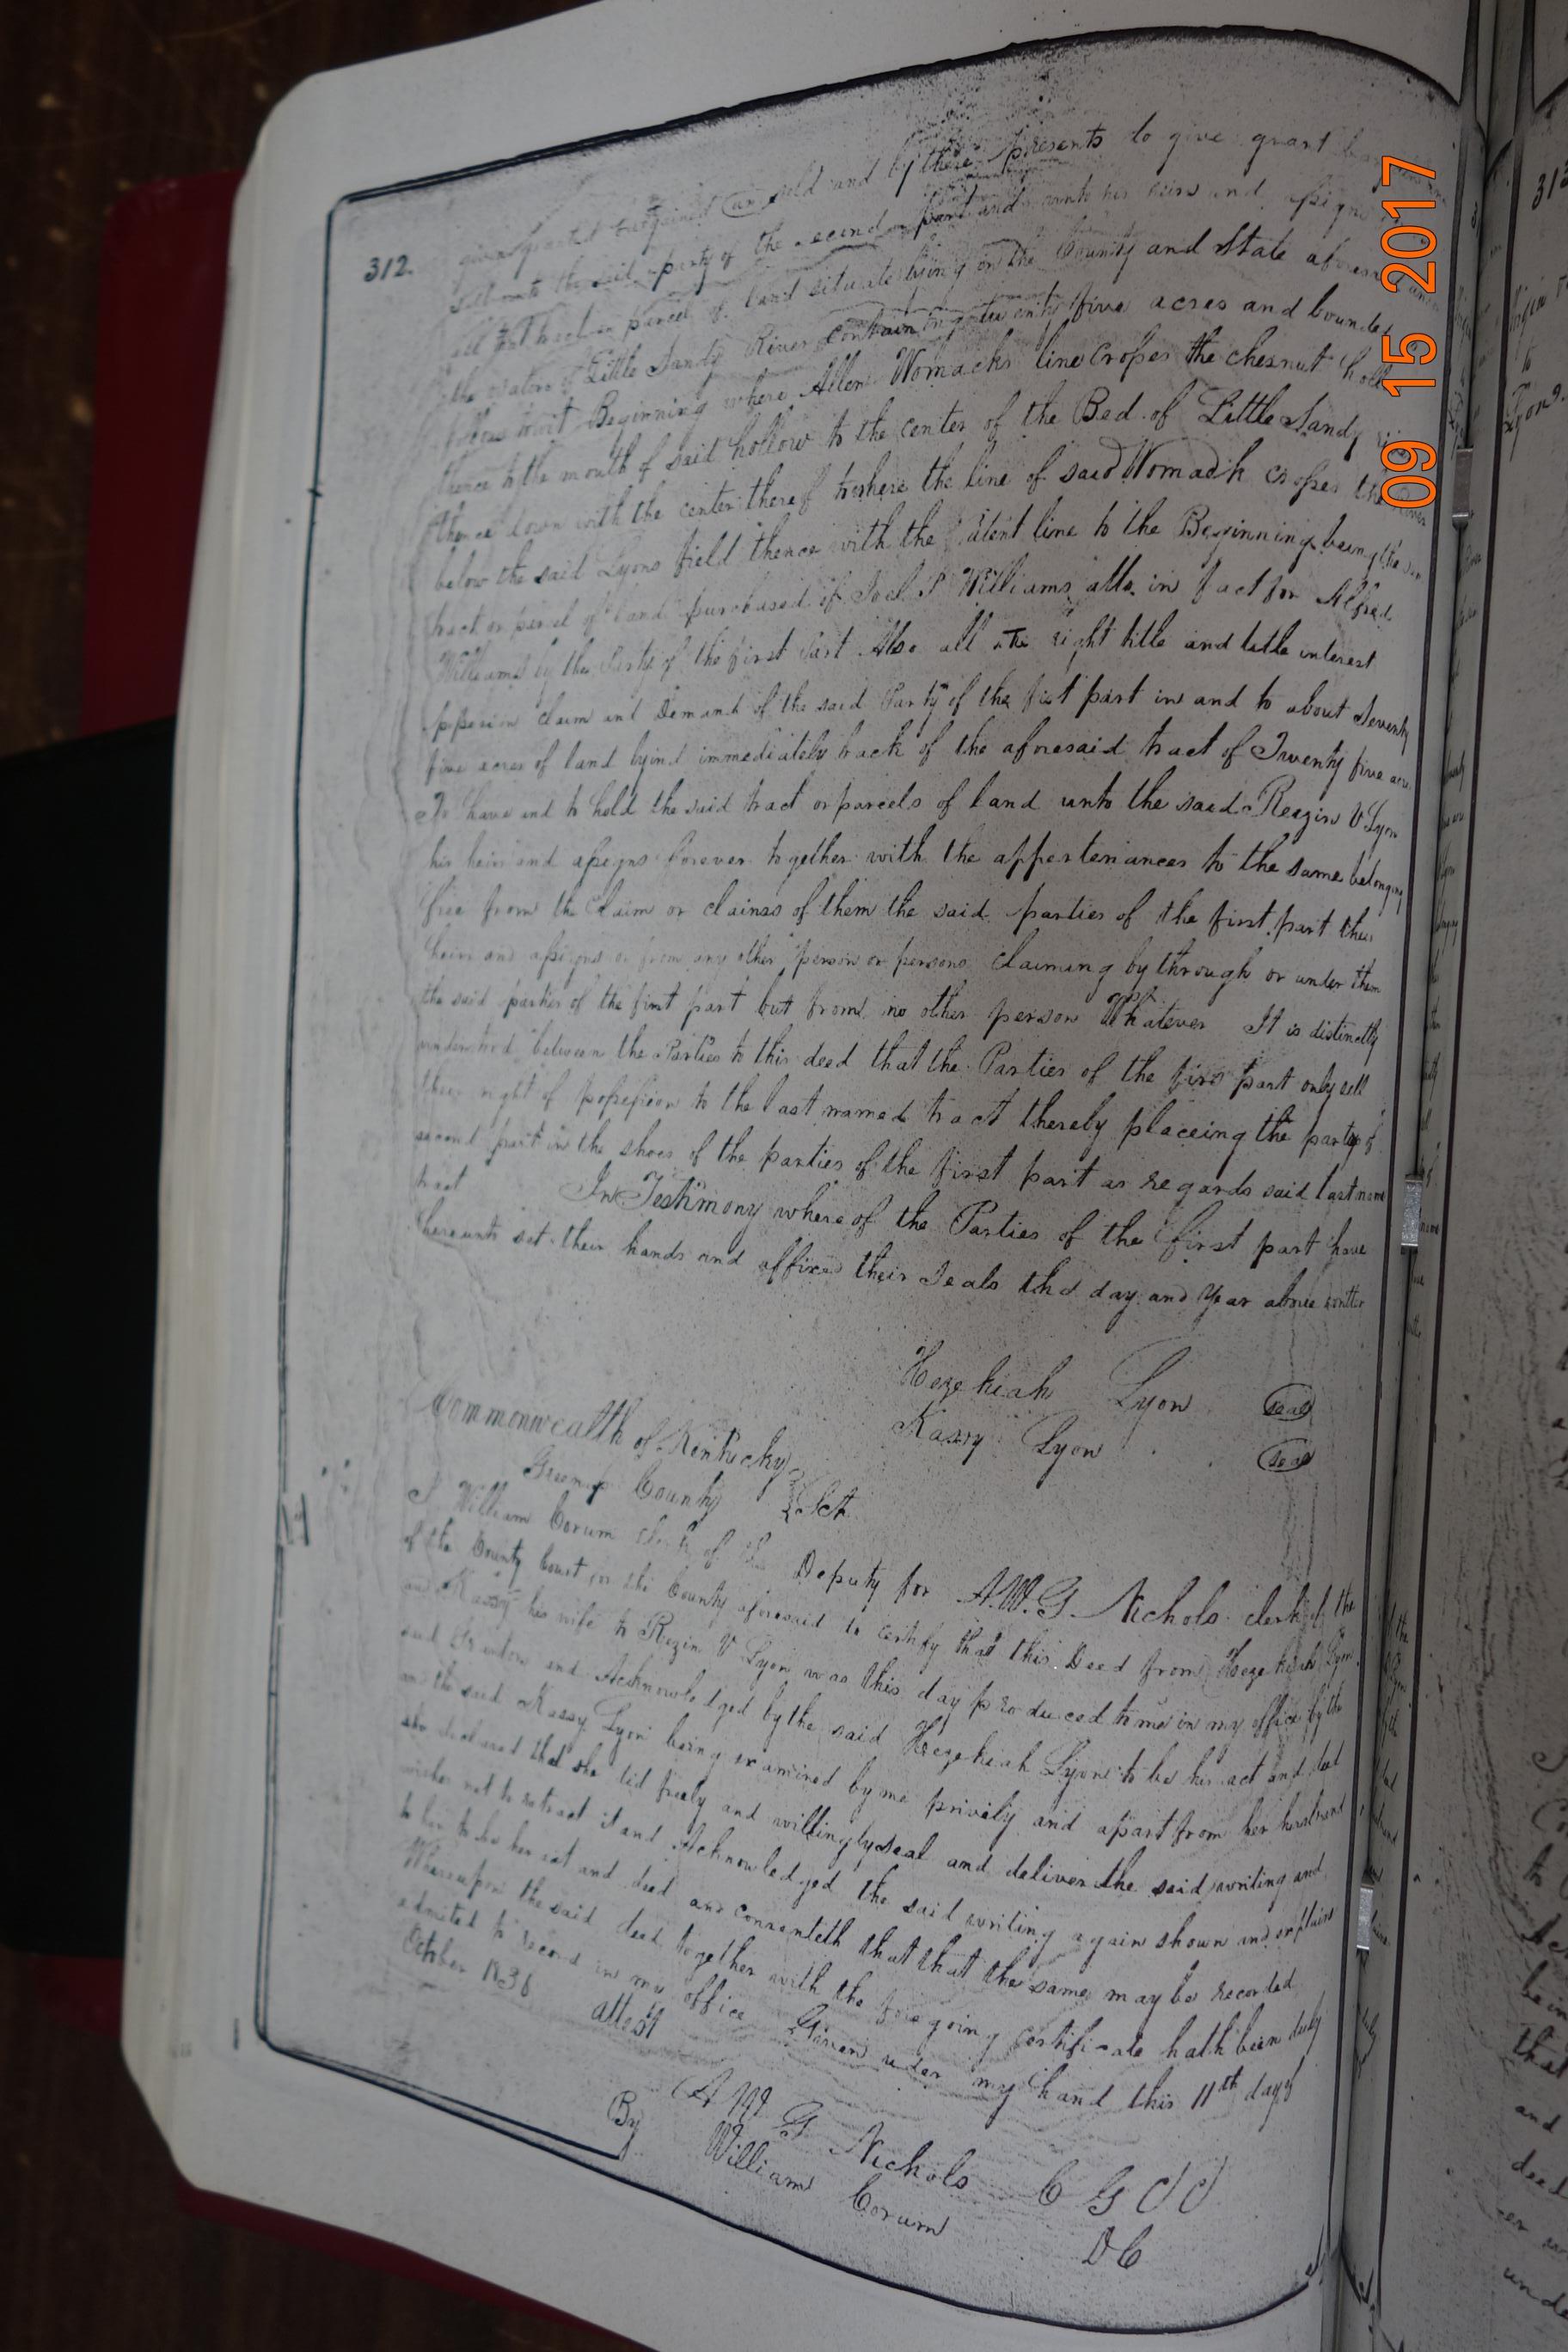 312.
given granted bargained and sold and by these presents to give grant
sell unto the said party of the second part and unto his heirs and assigns
all that tract or parcel of land situate lying on the County and State aforesaid
the waters of Little Sandy River containing twenty five acres and bounded
follows towit Beginning where Allen Womacks line crosses the chesnut
thence to the mouth of said hollow to the center of the Bed of Little Sandy
thence down with the center thereof to where the line of said Womack crosses the
below the said Lyons field thence with the Patent line to the Beginning being the
tract or parcel of land purchased of Joel P Williams atto. in fact for Alfred
Williams by the Party of the first Part Also all the right title and title interest
possesion claim and Demand of the said Party of the fist part in and to about Seventy
five acres of land lyind immediately back of the aforesaid tract of Twenty five acres
To have and to hold the said tract or parcels of land unto the said Reazin V Lyon
his heirs and assigns forever together with the appertenances to the same belonging
free from the Claim or claimes of them the said parties of the first part their
heirs and assigns or from any other person or persons claiming by through or under them
the said parties of the first part but from no other person Whatever It is distinctly
understood between the Parties to this deed that the Parties of the first part only sell
their right of possession to the last named tract thereby placeing the party of
second part in the shoes of the parties of the first part as regards said last name
tract In Testimony whereof the Parties of the first part have
hereunto set their hands and affixed their Seals the day and Year above written
Hezekiah Lyon (seal)
Kassy Lyon (seal)
Commonwealth of Kentucky
Greenup County Sct
I William Corum clerk of the Deputy for A.W.G. Nichols clerk of the
of the County Court for the County aforesaid to certify that this Deed from Hezekiah Lyon
and Kassy his wife to Rezin V Lyon was this day produced to me in my office by the
said Grantors and Acknowledged by the said Hezekiah Lyon to be his act and deed
and the said Kassy Lyon being examined by me privily and apart from her husband
she declared that she did freely and willingly seal and deliver the said writing and
wishes not to retract it and Acknowledged the said writing again shown and explained
to her to be her act and deed and consenteth that that the same may be recorded
Whereupon the said deed together with the foregoing certificate hath been duly
admited to record in my office Given under my hand this 11th day of
October 1836
attest
A W G Nichols C G C C
By William Corum D C
09 15 2017